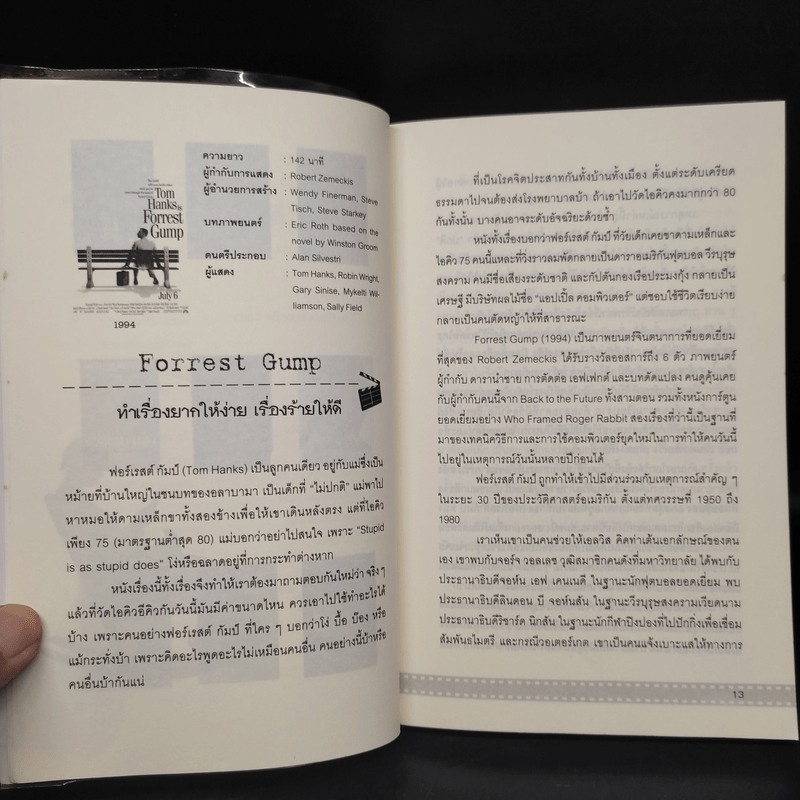 Tom
Hanks is
Forrest
Gump
July 6
1994
ความยาว : 142 นาที
ผู้กำกับการแสดง : Robert Zemeckis
ผู้อำนวยการสร้าง : Wendy Finerman, Steve
Tisch, Steve Starkey
บทภาพยนตร์ : Eric Roth based on the
novel by Winston Groom
ดนตรีประกอบ : Alan Silvestri
ผู้แสดง : Tom Hanks, Robin Wright,
Gary Sinise, Mykelti Wil-
liamson, Sally Field
Forrest Gump
ทำเรื่องยากให้ง่าย เรื่องร้ายให้ดี
ฟอร์เรสต์ กัมป์ (Tom Hanks) เป็นลูกคนเดียว อยู่กับแม่ซึ่งเป็น
หม้ายที่บ้านใหญ่ในชนบทของอลาบามา เป็นเด็กที่ “ไม่ปกติ” แม่พาไป
หาหมอให้ดามเหล็กขาทั้งสองข้างเพื่อให้เขาเดินหลังตรง แต่ที่ไอคิว
เพียง 75 (มาตรฐานต่ำสุด 80) แม่บอกว่าอย่าไปสนใจ เพราะ “Stupid
is as stupid does” โง่หรือฉลาดอยู่ที่การกระทำต่างหาก
หนังเรื่องนี้ทั้งเรื่องจึงทำให้เราต้องมาถามตอบกันใหม่ว่า จริงๆ
แล้วที่วัดไอคิวอีคิวกันวันนี้มันมีค่าขนาดไหน ควรเอาไปใช้ทำอะไรได้
บ้าง เพราะคนอย่างฟอร์เรสต์ กัมป์ ที่ใครๆ บอกว่าโง่ บื้อ บ๊อง หรือ
แม้กระทั่งบ้า เพราะคิดอะไรพูดอะไรไม่เหมือนคนอื่น คนอย่างนี้บ้าหรือ
คนอื่นบ้ากันแน่
ที่เป็นโรคจิตประสาทกันทั้งบ้านทั้งเมือง ตั้งแต่ระดับเครียด
ธรรมดาไปจนต้องส่งโรงพยาบาลบ้า ถ้าเอาไปวัดไอคิวคงมากกว่า 80
กันทั้งนั้น บางคนอาจระดับอัจฉริยะด้วยซ้ำ
หนังทั้งเรื่องบอกว่าฟอร์เรสต์ กัมป์ ที่วัยเด็กเคยขาดามเหล็กและ
ไอคิว 75 คนนี้แหละที่วิ่งราวลมพัดกลายเป็นดาราอเมริกันฟุตบอล วีรบุรุษ
สงคราม คนมีชื่อเสียงระดับชาติ และกัปตันกองเรือประมงกุ้ง กลายเป็น
เศรษฐี มีบริษัทผลไม้ชื่อ “แอปเปิ้ล คอมพิวเตอร์” แต่ชอบใช้ชีวิตเรียบง่าย
กลายเป็นคนตัดหญ้าให้ที่สาธารณะ
Forrest Gump (1994) เป็นภาพยนตร์จินตนาการที่ยอดเยี่ยม
ที่สุดของ Robert Zemeckis ได้รับรางวัลออสการ์ถึง 6 ตัว ภาพยนตร์
ผู้กำกับ ดารานำชาย การตัดต่อ เอฟเฟกต์ และบทดัดแปลง คนดูคุ้นเคย
กับผู้กำกับคนนี้จาก Back to the Future ทั้งสามตอน รวมทั้งหนังการ์ตูน
ยอดเยี่ยมอย่าง Who Framed Roger Rabbit สองเรื่องที่ว่านี้เป็นฐานที่
มาของเทคนิควิธีการและการใช้คอมพิวเตอร์ยุคใหม่ในการทำให้คนวันนี้
ไปอยู่ในเหตุการณ์วันนั้นหลายปีก่อนได้
ฟอร์เรสต์ กัมป์ ถูกทำให้เข้าไปมีส่วนร่วมกับเหตุการณ์สำคัญ ๆ
ในระยะ 30 ปีของประวัติศาสตร์อเมริกัน ตั้งแต่ทศวรรษที่ 1950 ถึง
1980
เราเห็นเขาเป็นคนช่วยให้เอลวิส คิดท่าเต้นเอกลักษณ์ของตน
เอง เขาพบกับจอร์จ วอลเลซ วุฒิสมาชิกคนดังที่มหาวิทยาลัย ได้พบกับ
ประธานาธิบดีจอห์น เอฟ เคนเนดี ในฐานะนักฟุตบอลยอดเยี่ยม พบ
ประธานาธิบดีลินดอน บี จอห์นสัน ในฐานะวีรบุรุษสงครามเวียดนาม
ประธานาธิบดีริชาร์ด นิกสัน ในฐานะนักกีฬาปิงปองที่ไปปักกิ่งเพื่อเชื่อม
สัมพันธไมตรี และกรณีวอเตอร์เกต เขาเป็นคนแจ้งเบาะแสให้ทางการ
13